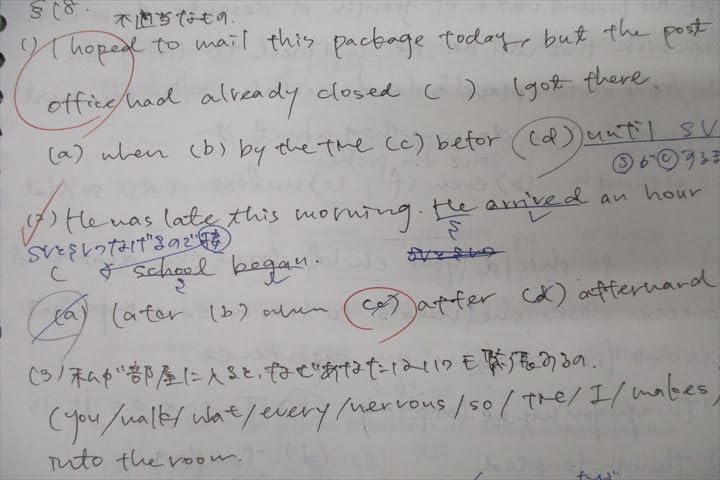 §18. 不適当なもの.
(1) I hoped to mail this package today, but the post
office had already closed ( ) I got there
(a) when (b) by the tme (c) befor (d) until SV
SがVするま
(2) He was late this morning. He arrived an hour
SVとSVつなげるので接 S V
( school began. SVとSVの
S V
(a) later (b) when (c) after (d) afterward
(3) 私が部屋に入ると、なぜあなたはいつも緊張するの.
(you / walk / wat / every / nervous / so / tme / I / makes /
into the room.